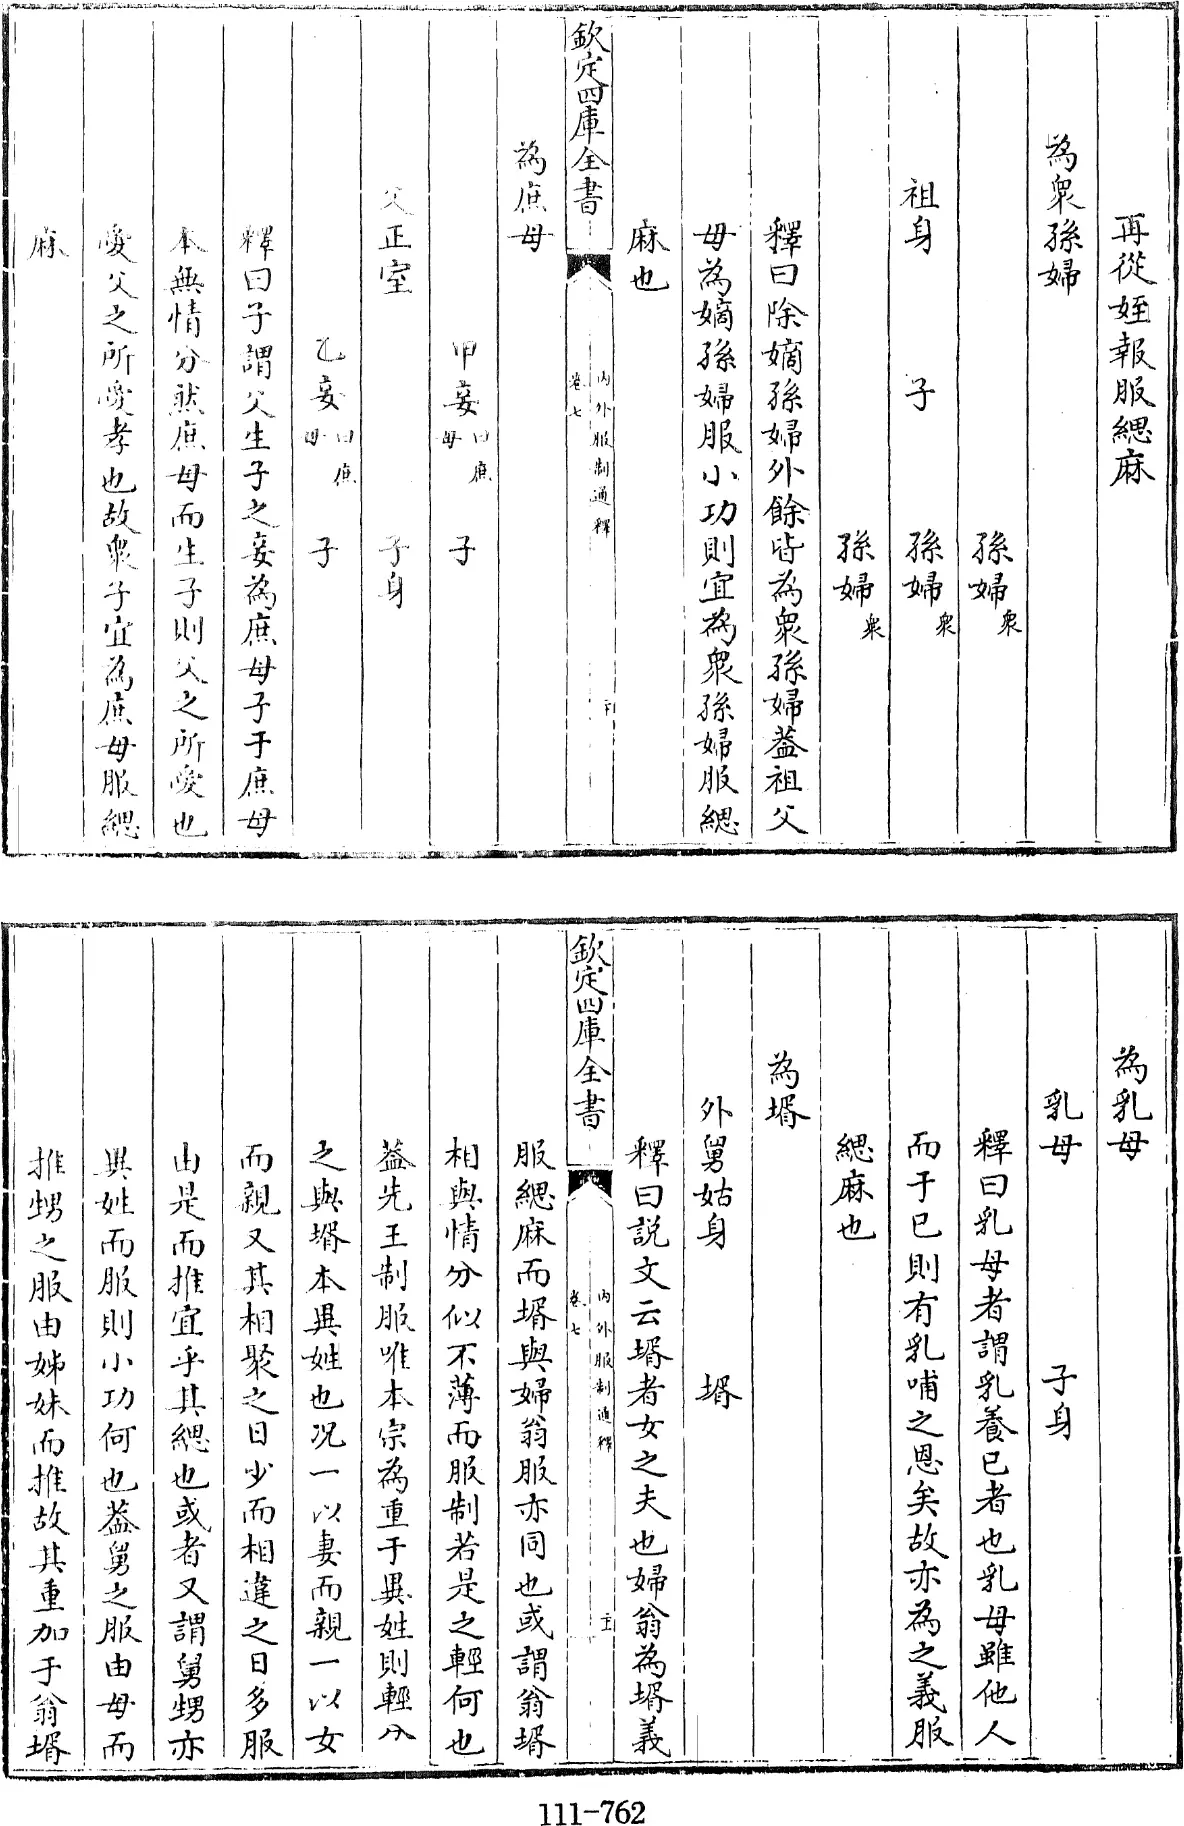 再從姪報服緦麻
為衆孫婦
孫婦衆
祖身　子　孫婦衆
孫婦衆
釋曰除嫡孫婦外餘皆為衆孫婦蓋祖父
母為嫡孫婦服小功則宜為衆孫婦服緦
麻也
欽定四庫全書
內外服制通釋
卷七
為庶母
甲妾曰庶母　子
父正室　子身
乙妾曰庶母　子
釋曰子謂父生子之妾為庶母子于庶母
本無情分然庶母而生子則父之所愛也
愛父之所愛孝也故衆子宜為庶母服緦
麻
為乳母
乳母　子身
釋曰乳母者謂乳養已者也乳母雖他人
而于已則有乳哺之恩矣故亦為之義服
緦麻也
為壻
外舅姑身　壻
釋曰説文云壻者女之夫也婦翁為壻義
欽定四庫全書
內外服制通釋
卷七
服緦麻而壻與婦翁服亦同也或謂翁壻
相與情分似不薄而服制若是之輕何也
蓋先王制服唯本宗為重于異姓則輕公
之與壻本異姓也况一以妻而親一以女
而親又其相聚之日少而相違之日多服
由是而推宜乎其緦也或者又謂舅甥亦
異姓而服則小功何也蓋舅之服由母而
推甥之服由姊妹而推故其重加于翁壻
111-762